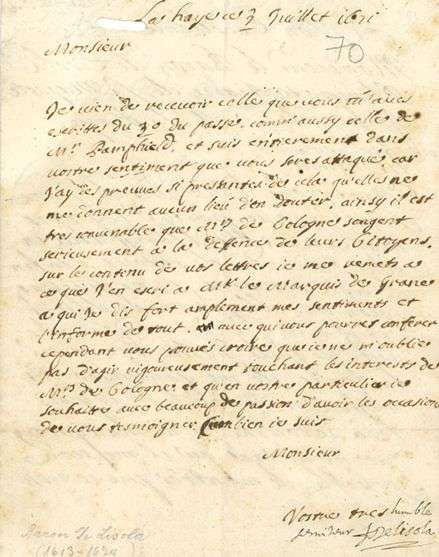 La haye ce 3 Juillet 1671
70
Monsieur
Je vien de recevoir celle que vous m'avés
escrittes du 30 du passé, comm'aussy celle de
Mr. Pamphield, et suis entierement dans
vostre sentiment que vous serés attaqué car
J'ay des preuves si pressantes de cela qu'elles ne
me donnent aucun lieu d'en douter, ainsy il est
tres convenable que Mrs de Cologne songent
serieusement a la defence de leurs Citoyens,
sur le contenu de vos lettres ie me remets a
ce que J'en escri a Mr. le Marquis de Grane
a qui Je dis fort amplement mes sentiments et
l'informe de tout, avec qui vous pourres conferer
cependant vous pouvés croire que ie ne m'oublie
pas d'agir vigoureusement touchant les interests de
Mrs. de Cologne, et qu'en vostre particulier ie
souhaitte avec beaucoup de passion d'avoir les occasion
de vous tesmoigner Combien ie suis
Monsieur
Vostre tres humble
serviteur Delisola
Baron de Lisola
(1613-1674)